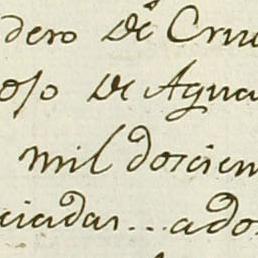 dero de Cru
oso de Agua
mil doscien
ciadas... ado